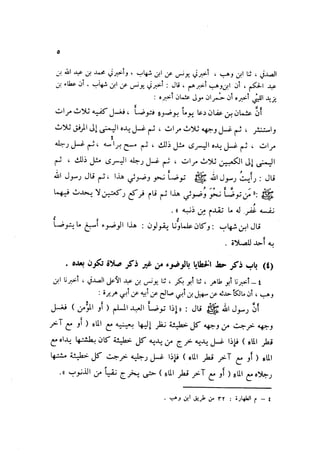 ٥
الصدفي ، ثنا ابن وهب ، أخبرني يونس عن ابن شهاب ، وأخبرني محمد بن عبد الله بن
عبد الحكم ، أن ابن وهب أخبرهم ، قال : أخبرني يونس عن ابن شهاب . أن عطاء بن
يزيد الليثي أخبره أن حمران مولى عثمان أخبره :
أنّ عثمان بن عفان دعا يوماً بوضوء فتوضأ ، فغسل كفيه ثلاث مرات
واستنثر ، ثم غسل وجهه ثلاث مرات ، ثم غسل يده اليمنى إلى المرفق ثلاث
مرات ، ثم غسل يده اليسرى مثل ذلك ، ثم مسح برأسه ، ثم غسل رجله
اليمنى إلى الكعبين ثلاث مرات ، ثم غسل رجله اليسرى مثل ذلك ، ثم
قال : رأيت رسول الله ﷺ توضأ نحو وضوئي هذا ، ثم قال رسول الله
ﷺ : « من توضأ نحو وضوئي هذا ثم قام فركع ركعتين لا يحدث فيهما
نفسه غُفر له ما تقدم من ذنبه » .
قال ابن شهاب : وكان علماؤنا يقولون : هذا الوضوء أسبغ ما يتوضأ
به أحد للصلاة .
(٤) باب ذكر حط الخطايا بالوضوء من غير ذكر صلاة تكون بعده .
٤ – أخبرنا أبو طاهر ، ثنا أبو بكر ، ثنا يونس بن عبد الأعلى الصدفي ، أخبرنا ابن
وهب ، أن مالكاً حدثه عن سهيل بن أبي صالح عن أبيه عن أبي هريرة :
أنّ رسول الله ﷺ قال : « إذا توضأ العبد المسلم ( أو المؤمن ) فغسل
وجهه خرجت من وجهه كل خطيئة نظر إليها بعينيه مع الماء ( أو مع آخر
قطر الماء ) فإذا غسل يديه خرج من يديه كل خطيئة كان بطشتها يداه مع
الماء ( أو مع آخر قطر الماء ) فإذا غسل رجليه خرجت كل خطيئة مشتها
رجلاه مع الماء ( أو مع آخر قطر الماء ) حتى يخرج نقياً من الذنوب » .
٤ – م الطهارة : ٣٢ من طريق ابن وهب .